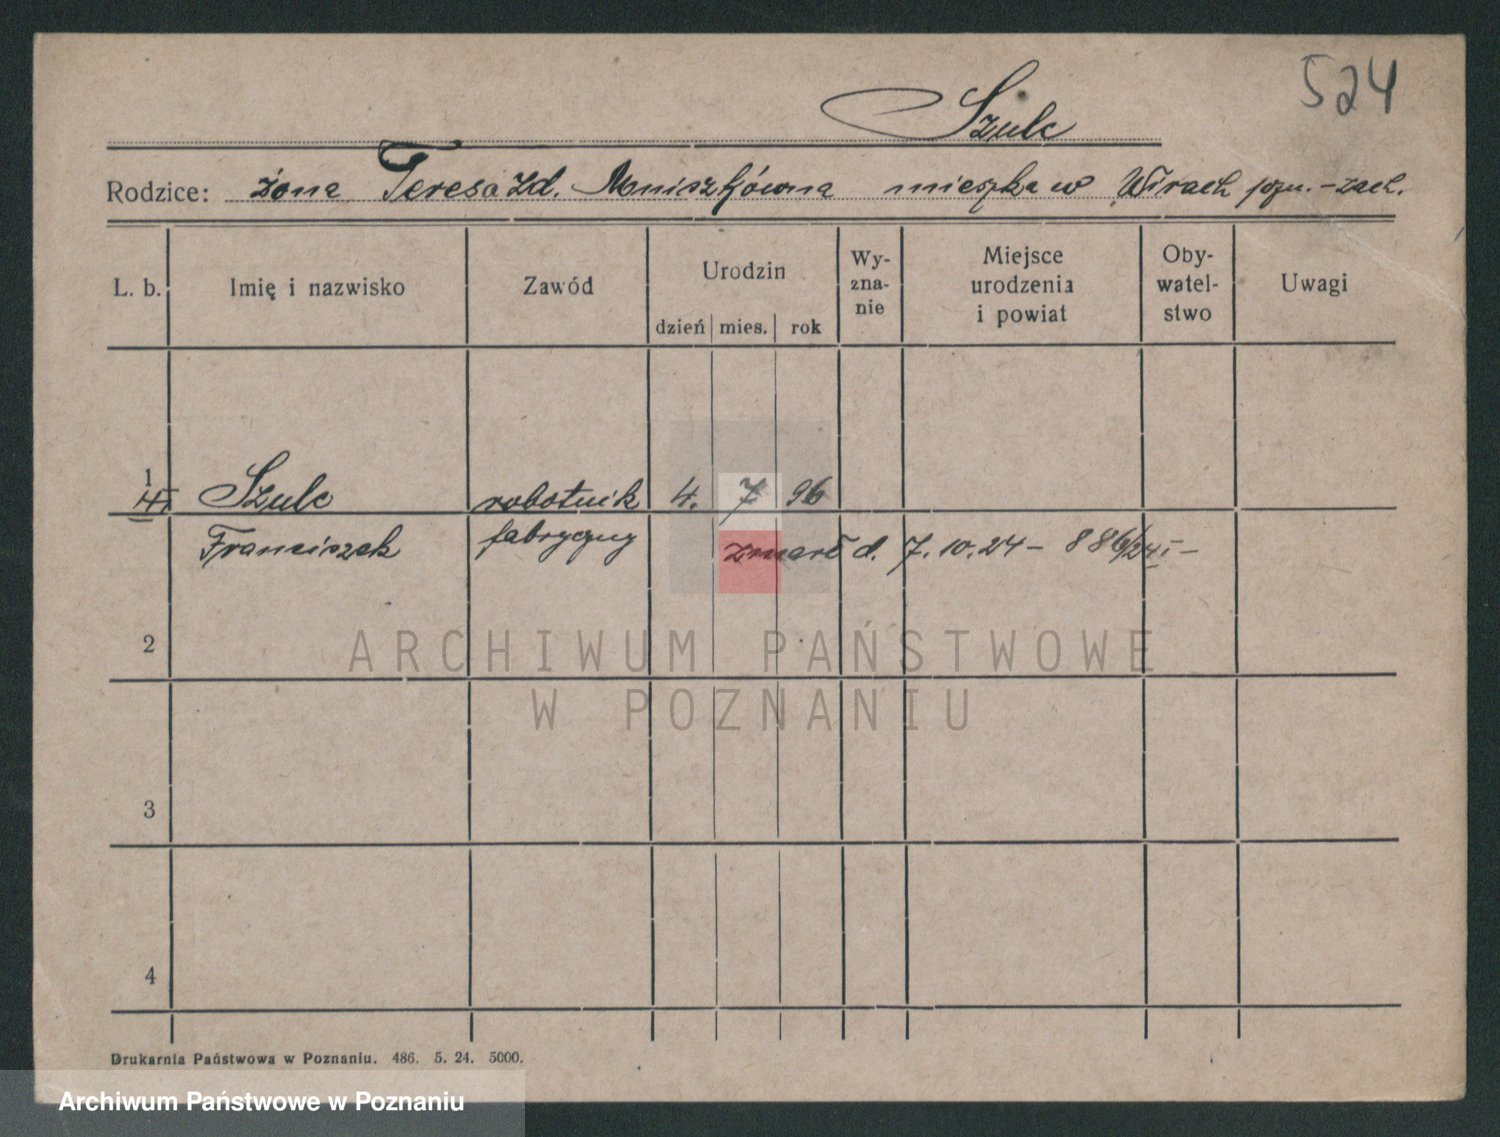 524
Szulc
Rodzice: żona Teresa zd. Mniszkówna mieszka w Wirach pozn.-zach.
L. b. Imię i nazwisko Zawód Urodzin dzień mies. rok Wy-zna-nie Miejsce urodzenia i powiat Oby-watel-stwo Uwagi
1 Szulc robotnik 4. 7 96
Franciszek fabryczny zmarł d. 7.10.24 - 886/24 I -
2
3
4
ARCHIWUM PAŃSTWOWE
W POZNANIU
Drukarnia Państwowa w Poznaniu. 486. 5. 24. 5000.
Archiwum Państwowe w Poznaniu